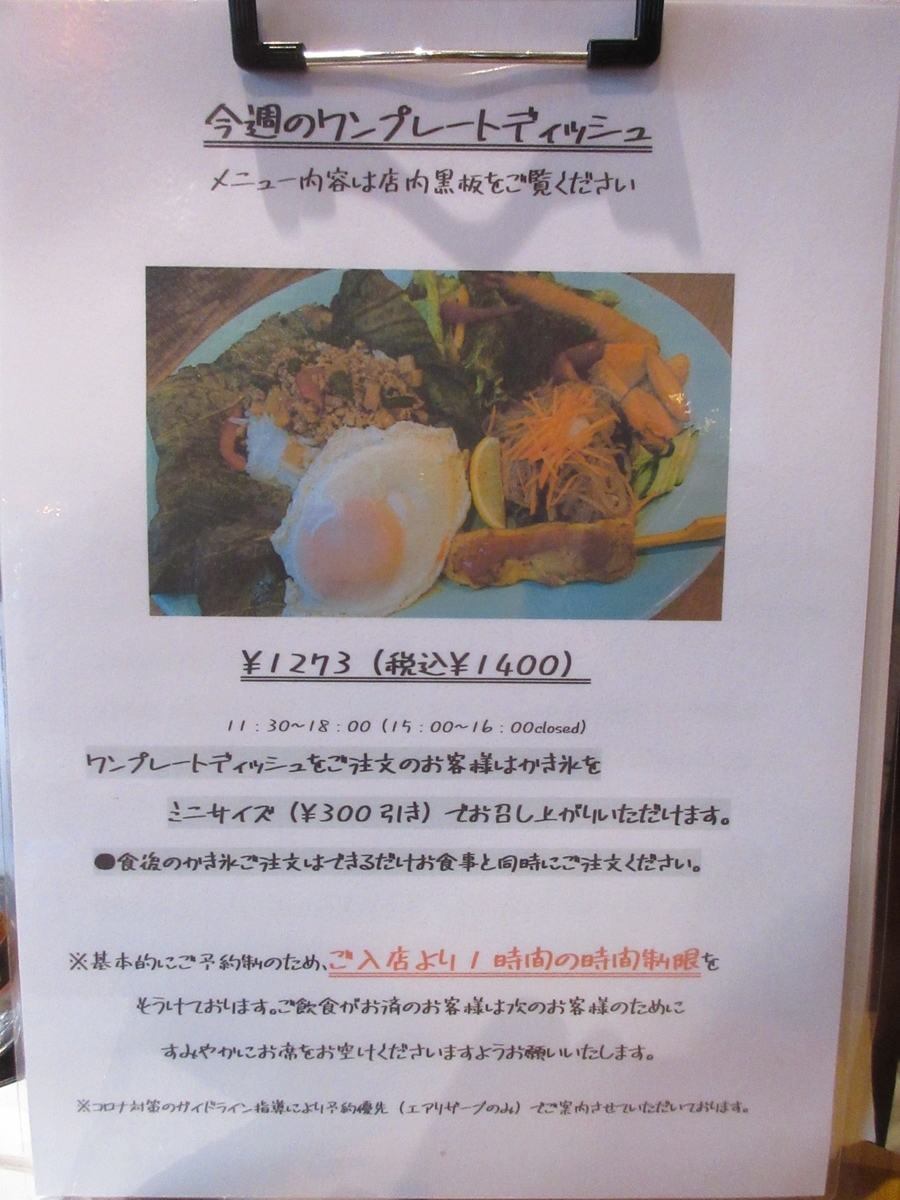 今週のワンプレートディッシュ
メニュー内容は店内黒板をご覧ください
¥1273（税込¥1400）
11：30～18：00（15：00～16：00closed）
ワンプレートディッシュをご注文のお客様はかき氷を
ミニサイズ（¥300引き）でお召し上がりいただけます。
●食後のかき氷ご注文はできるだけお食事と同時にご注文ください。
※基本的にご予約制のため、ご入店より1時間の時間制限を
そうけております。ご飲食がお済のお客様は次のお客様のために
すみやかにお席をお空けくださいますようお願いいたします。
※コロナ対策のガイドライン指導により予約優先（エアリザーブのみ）でご案内させていただいております。